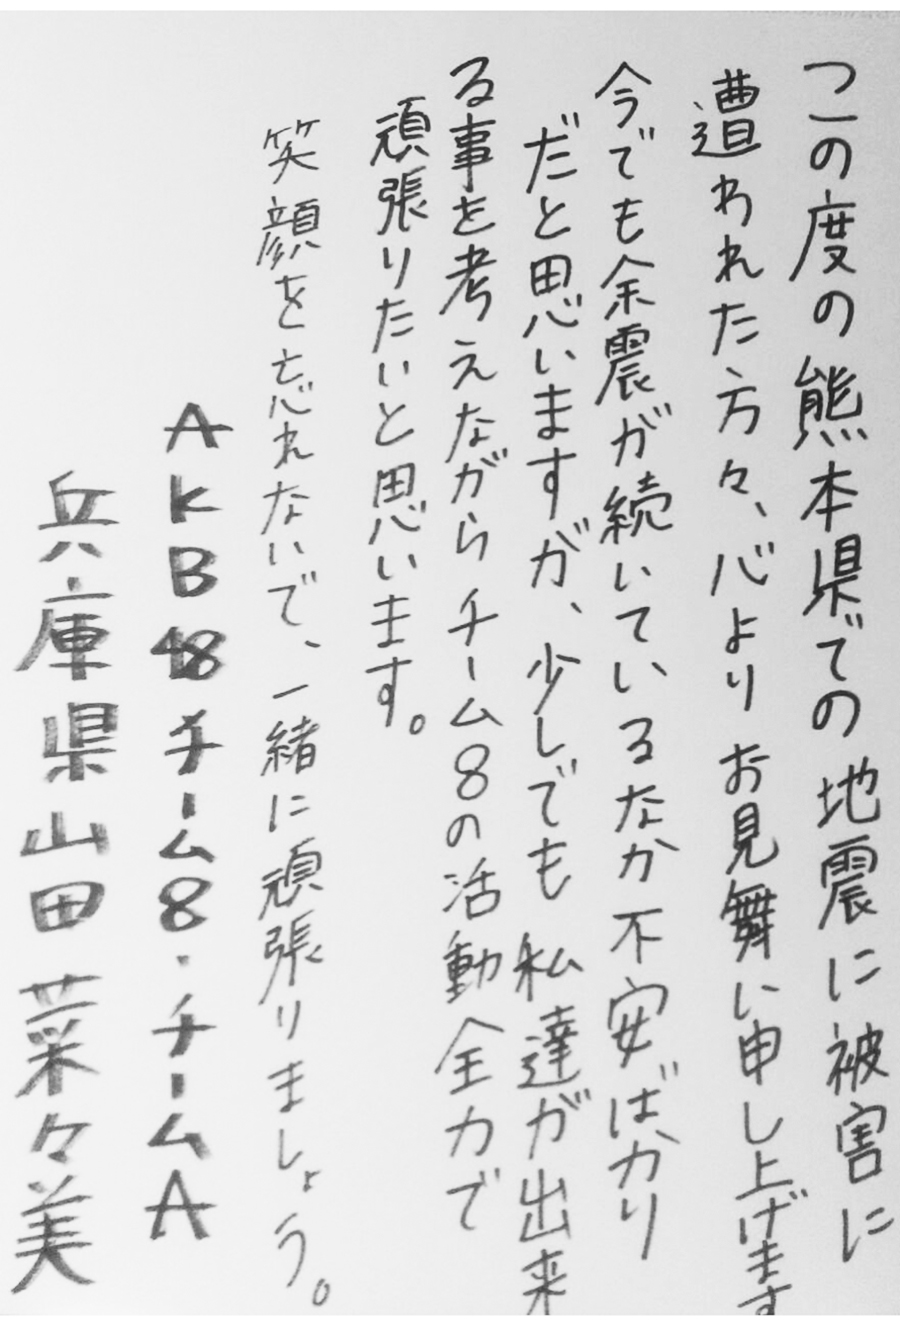 この度の熊本県での地震に被害に
遭われた方々、心よりお見舞い申し上げます
今でも余震が続いているなか不安ばかり
だと思いますが、少しでも私達が出来
る事を考えながらチーム8の活動全力で
頑張りたいと思います。
笑顔を忘れないで、一緒に頑張りましょう。
AKB48チーム8・チームA
兵庫県山田菜々美